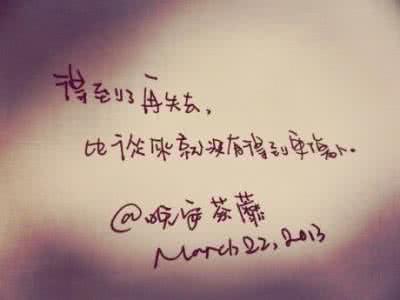 得到了再失去，
比從來就没有得到更傷人。
@晚安荼蘼
March 22, 2013